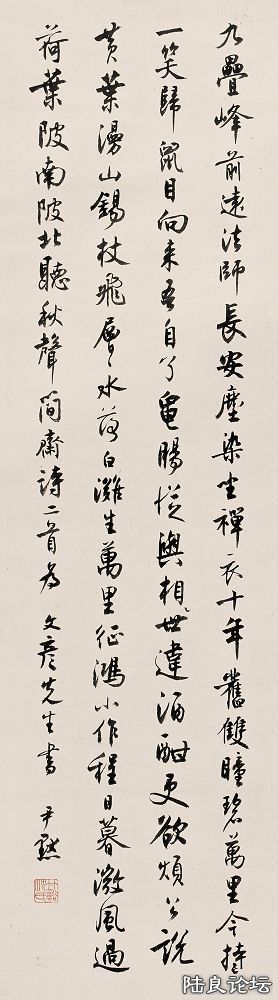 九疊峰前遠法師長安塵染坐禪衣十年舊雙瞳碧萬里今持
一笑歸鼠目向来吾自了龜腸從與相世違酒酣更欲煩公説
黄葉漫山錫杖飛層々水落白灘生萬里征鴻小作程日暮微風過
荷葉陂南陂北聽秋聲簡齋詩二首為 文彦先生書 尹默
陆良论坛